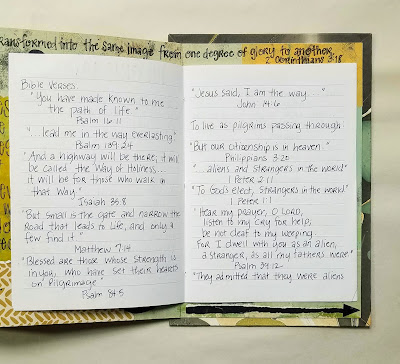 transformed into the same image from one degree of glory to another.
2 Corinthians 3:18
Bible Verses
"You have made known to me
the path of life."
Psalm 16:11
"...lead me in the way everlasting"
Psalm 139:24
"And a highway will be there; it will
be called the Way of Holiness...
it will be for those who walk in
that Way."
Isaiah 35:8
"But small is the gate and narrow the
Road that leads to Life, and only a
few find it."
Matthew 7:14
"Blessed are those whose strength is
in you, who have set their hearts
on Pilgrimage."
Psalm 84:5
"Jesus said, I am the way...."
John 14:6
To live as pilgrims passing through
"But our citizenship is in heaven."
Philippians 3:20
"...aliens and strangers in the world"
1 Peter 2:11
"To God's elect, strangers in the world"
1 Peter 1:1
"Hear my prayer, O Lord,
listen to my cry for help;
be not deaf to my weeping.
For I dwell with you as an alien,
a stranger, as all my fathers were"
Psalm 39:12
"They admitted that they were aliens